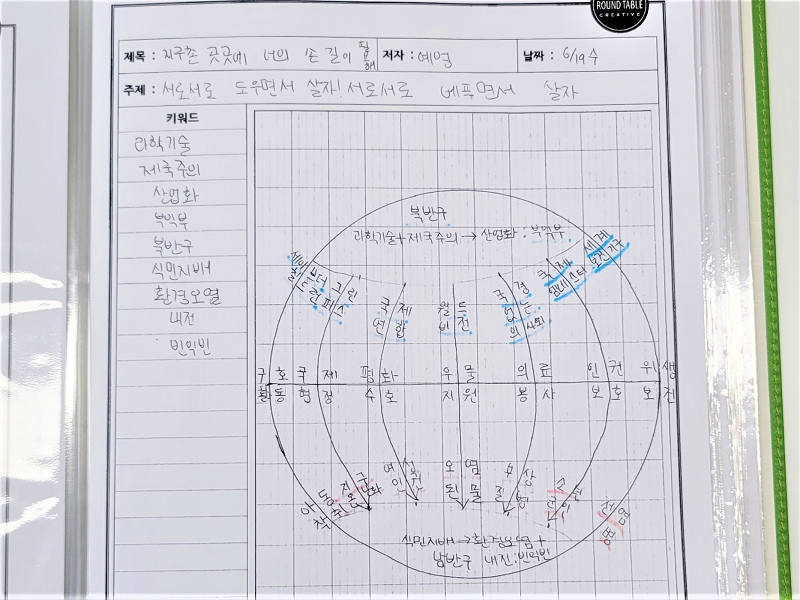 ROUND TABLE
CREATIVE
제목 : 지구촌 곳곳에 너의 손길이 필요해
저자 : 예영
날짜 : 6/19 수
주제 : 서로서로 도우면서 살자! 서로서로 베푸면서 살자
키워드
과학기술
제국주의
산업화
부익부
북반구
식민지배
환경오염
내전
빈익빈
북반구
과학기술+제국주의→산업화:부익부
세이브더칠드런
그린피스
국제연합
월드비전
국경없는의사회
국제앰네스티
세계보건기구
구호활동
국제협정
평화수호
우물지원
의료봉사
인권보호
위생보건
아동착취
지구온난화
여성인권
오염된물
부상질병
전염병
식민지배→환경오염+
남반구 내전:빈익빈